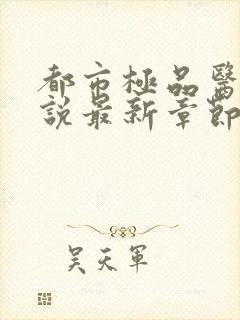 都市極品醫
說最新章節
吳天軍